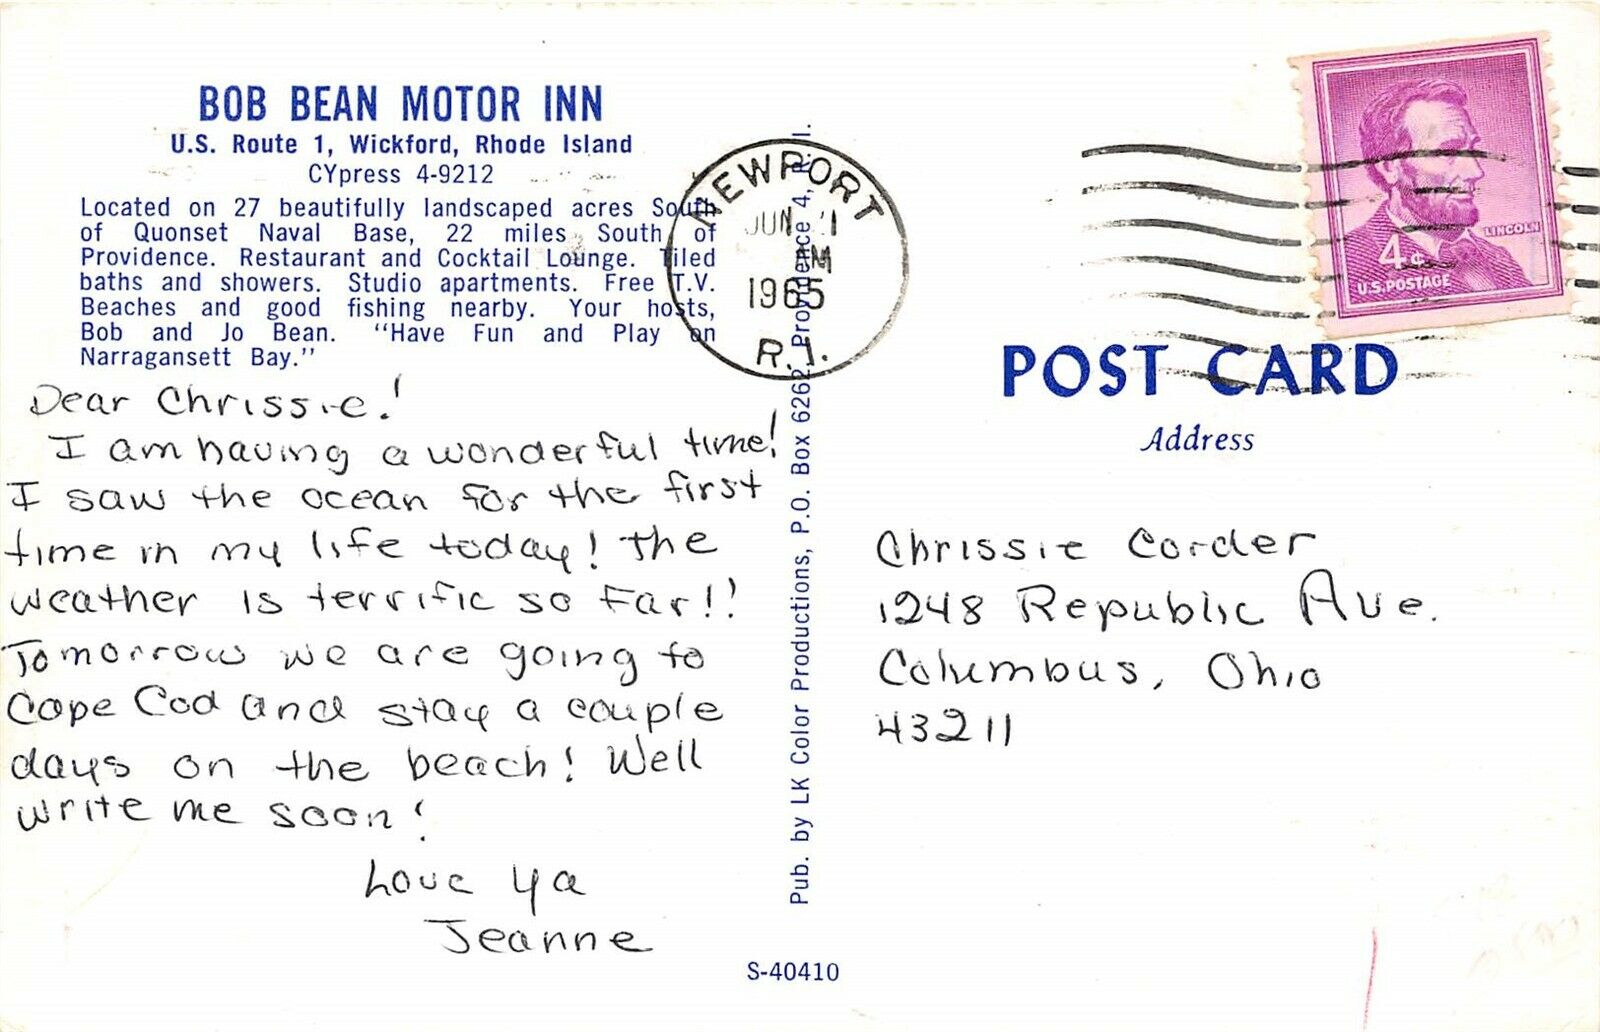 BOB BEAN MOTOR INN
U.S. Route 1, Wickford, Rhode Island
CYpress 4-9212
Located on 27 beautifully landscaped acres South
of Quonset Naval Base, 22 miles South of
Providence. Restaurant and Cocktail Lounge. Tiled
baths and showers. Studio apartments. Free T.V.
Beaches and good fishing nearby. Your hosts,
Bob and Jo Bean. "Have Fun and Play on
Narragansett Bay."
Dear Chrissie!
I am having a wonderful time!
I saw the ocean for the first
time in my life today! The
weather is terrific so far!!
Tomorrow we are going to
Cape Cod and stay a couple
days on the beach! Well
write me soon!
Love ya
Jeanne
NEWPORT
JUN
AM
1965
R.I.
Pub. by LK Color Productions, P.O. Box 6262, Providence 4, R. I.
S-40410
LINCOLN
4¢
U.S. POSTAGE
POST CARD
Address
Chrissie Corder
1248 Republic Ave.
Columbus, Ohio
43211